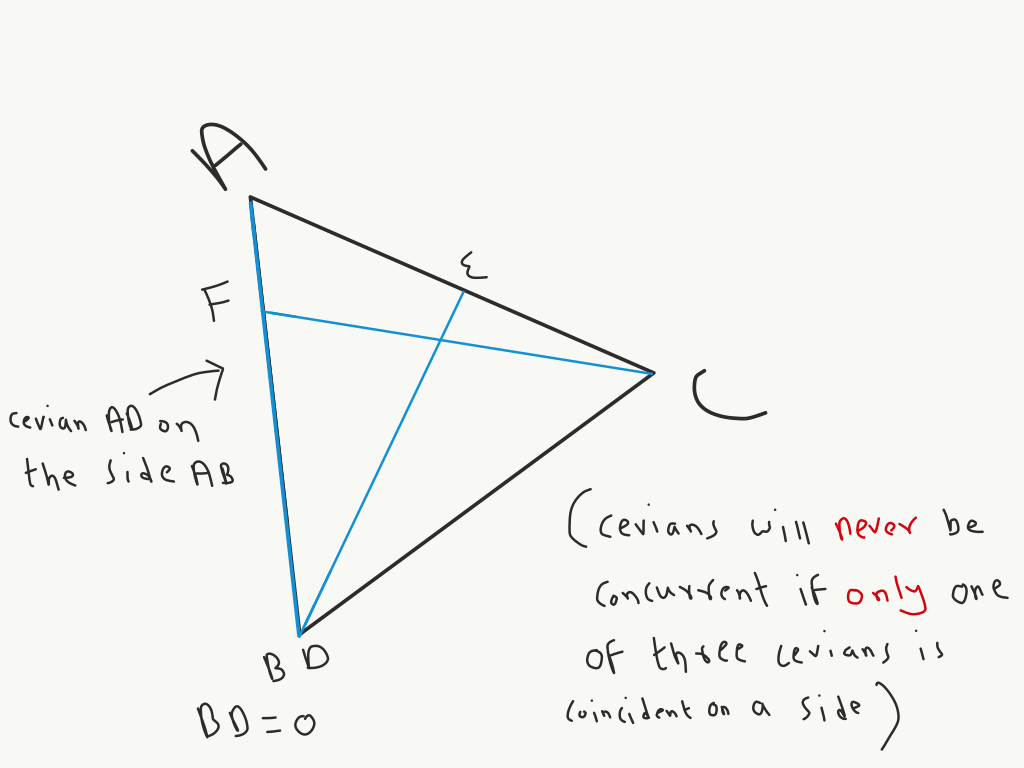 A
E
F
C
cevian AD on
the side AB
(cevians will never be
concurrent if only one
of three cevians is
coincident on a side)
B D
BD = 0